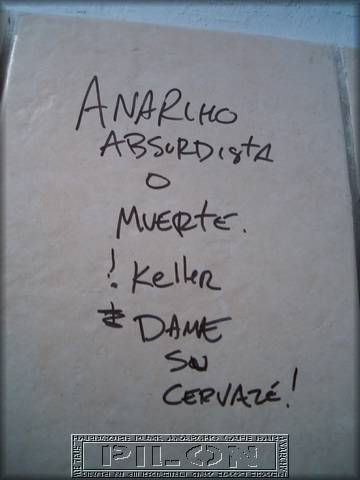 ANARCHO
ABSURDISTA
O
MUERTE.
! Keller
DAME
SU
CERVAZÉ!
PIL-ON